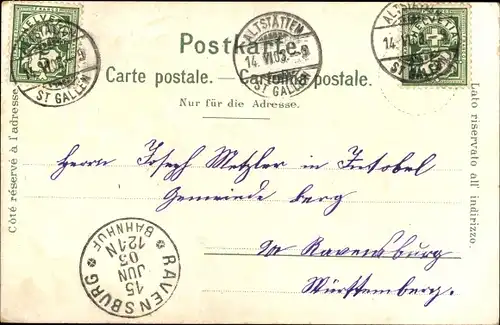 HELVETIA
HELVETIA
ALTSTÄTTEN
14.VI.05.
ST GALLEN
ALTSTÄTTEN
14.VI.05.
ST GALLEN
ALTSTÄTTEN
14.VI.05.
ST GALLEN
Postkarte.
Carte postale. — Cartolina postale.
Nur für die Adresse.
Côté réservé à l'adresse.
Lato riservato all' indirizzo.
Herrn Joseph Metzler in Intobel
Gemeinde Berg
Ravensburg
Württemberg.
RAVENSBURG
BAHNHOF
15
JUN
05
12-1N